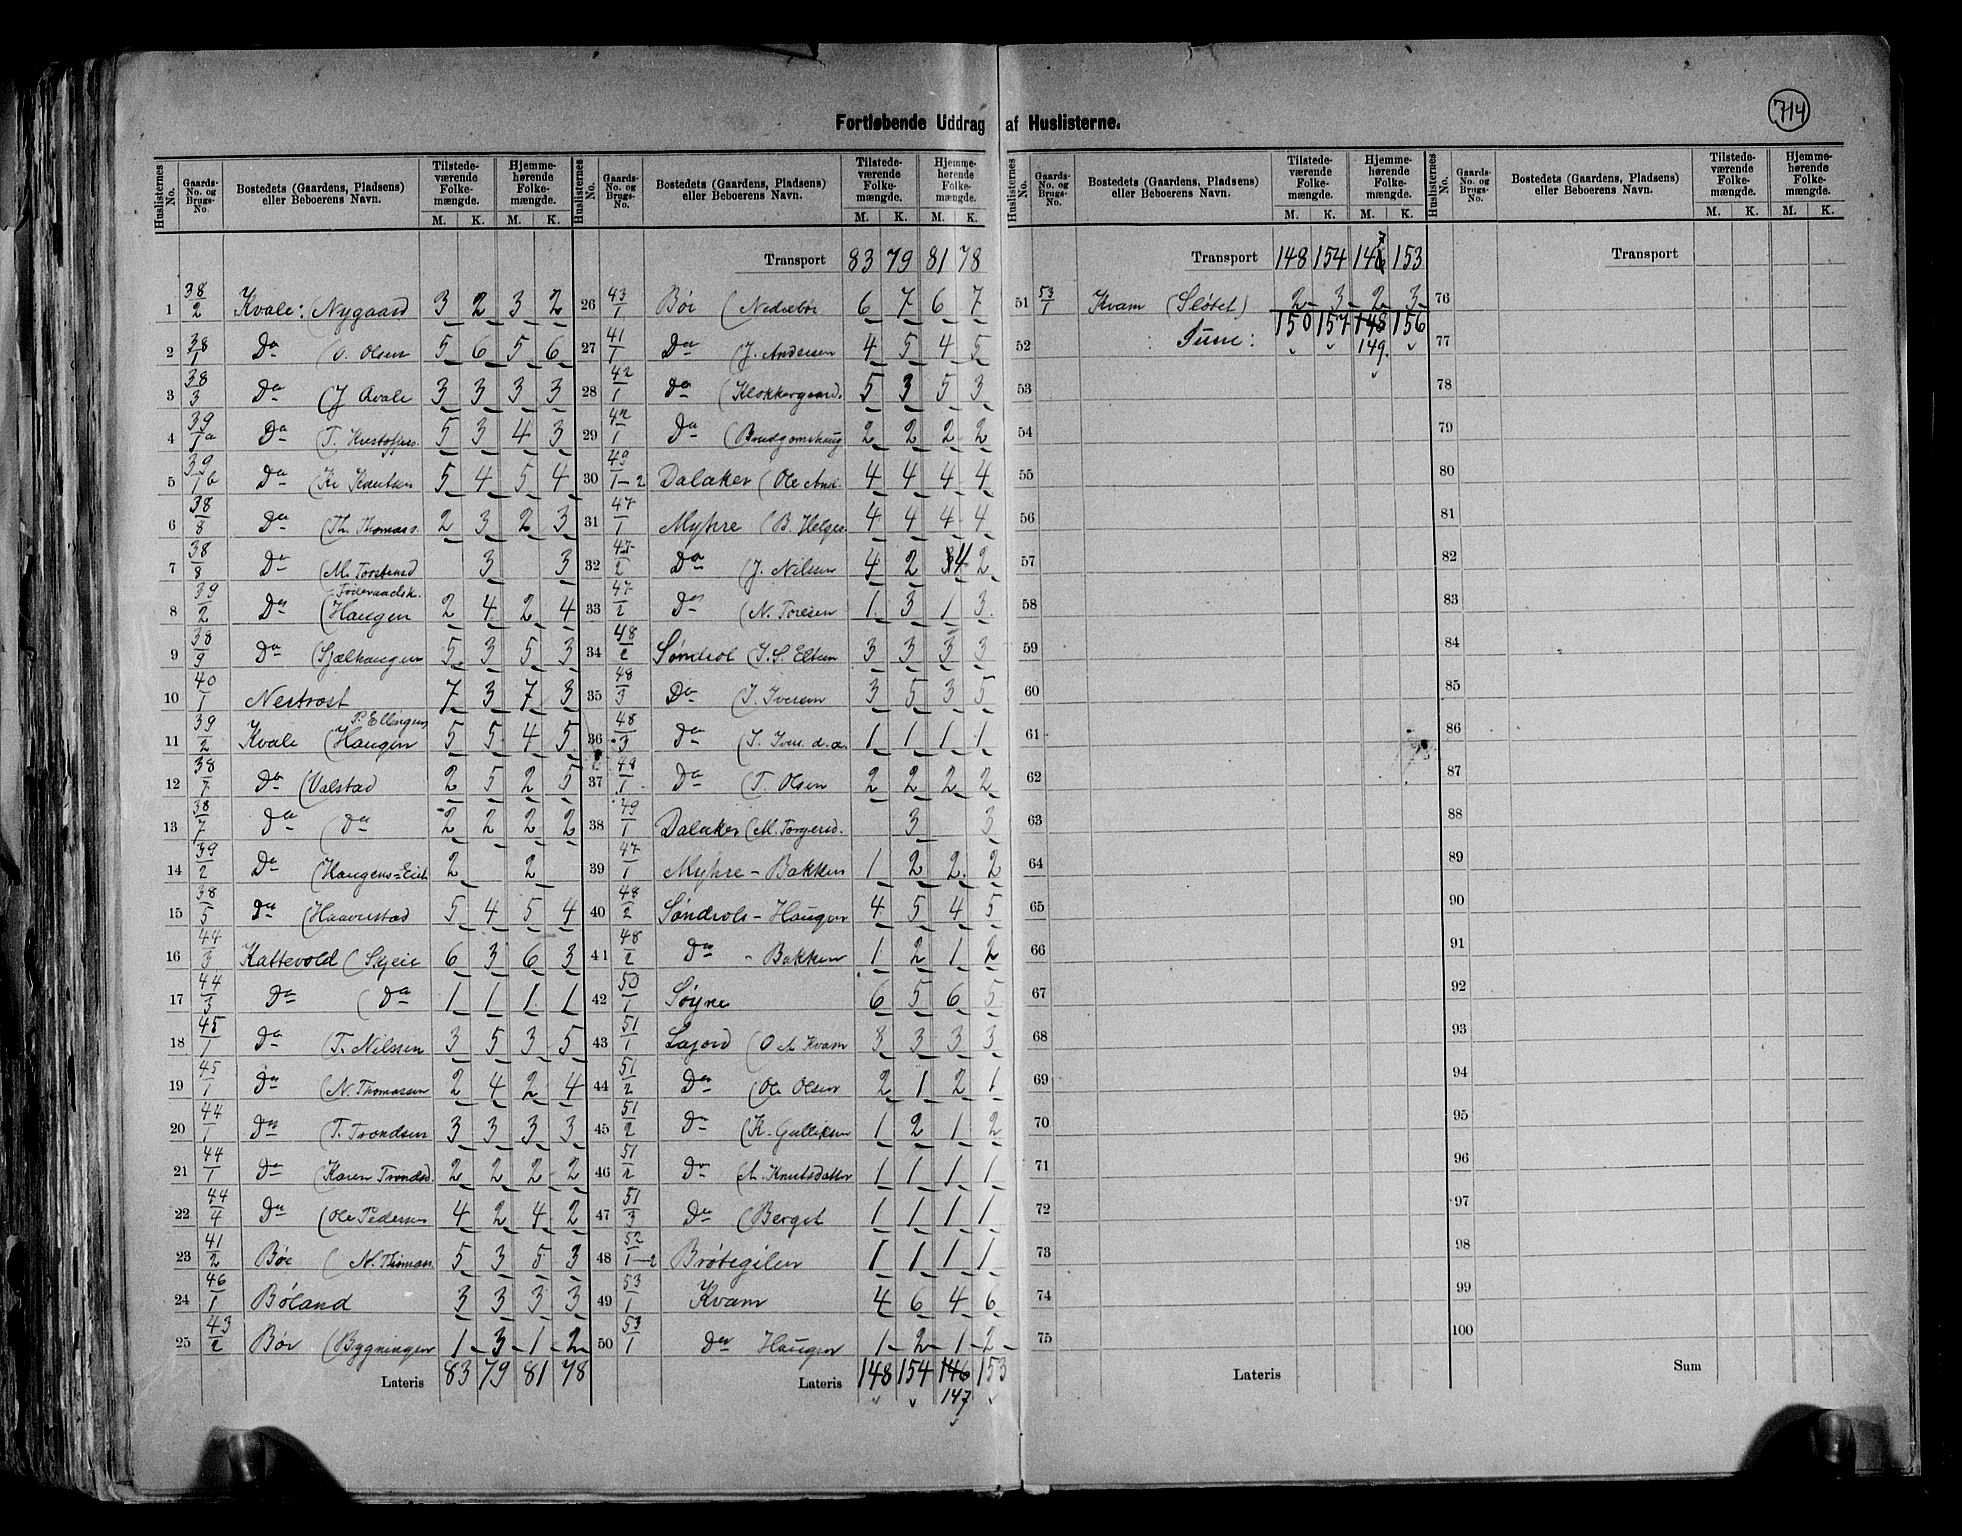 714
Fortløbende Uddrag af Huslisterne.
Huslisternes No. Gaards-No. og Brugs-No. Bostedets (Gaardens, Pladsen) eller Beboerens Navn. Tilstedeværende Folkemængde. M. K. Hjemmehørende Folkemængde. M. K.
1 38/2 Kvale: (Nygaard 3 2 3 2
2 38/1 Do (O. Olsen 5 6 5 6
3 38/3 Do (J Qvale 3 3 3 3
4 39/1a Do (T. Kristoffers. 5 3 4 3
5 39/1b Do (Kr 5 4 5 4
6 38/8 Do (Th. Thomass. 2 3 2 3
7 38/8 Do (M. Torstensd 3 3
8 39/2 Do (Haugen Foderaadsk. 2 4 2 4
9 38/9 Do (Sjælhaugen 5 3 5 3
10 40/1 Nestrost 7 3 7 3
11 39/2 Kvale (Haugen P. Ellengsen 5 5 4 5
12 38/7 Do (Valstad 2 5 2 5
13 38/7 Do (Do 2 2 2 2
14 39/2 Do (Haugens= 2 2
15 38/5 Do (Haaverstad 5 4 5 4
16 44/3 Kattevold (Skjeie 6 3 6 3
17 44/3 Do (Do 1 1 1 1
18 45/1 Do (T. Nilssen 3 5 3 5
19 45/1 Do (N. Thomassen 2 4 2 4
20 44/1 Do (T. Trondsen 3 3 3 3
21 44/1 Do (Karen Trondsd. 2 2 2 2
22 44/4 Do (Ole Pedersen 4 2 4 2
23 41/2 Bøe (N. Thomas. 5 3 5 3
24 46/1 Bøland 3 3 3 3
25 43/2 Bøe (Bygningen 1 3 1 2
Lateris 83 79 81 78
Huslisternes No. Gaards-No. og Brugs-No. Bostedets (Gaardens, Pladsen) eller Beboerens Navn. Tilstedeværende Folkemængde. M. K. Hjemmehørende Folkemængde. M. K.
Transport 83 79 81 78
26 43/1 Bøe (Nedrebøe 6 7 6 7
27 41/1 Do (J. Andersen 4 5 4 5
28 42/1 Do (Klokkergaard. 5 3 5 3
29 42/1 Do (Brudgomshaug 2 2 2 2
30 49/1-2 Dalaker (Ole And. 4 4 4 4
31 47/1 Myhre (B. Helges. 4 4 4 4
32 47/2 Do (J. Nilsen 4 2 4 2
33 47/2 Do (N. Toresen 1 3 1 3
34 48/2 Søndrol (I. S. Elsen 3 3 3 3
35 48/3 Do (I. Iversen 3 5 3 5
36 48/3 Do (I. Ivers. d. æ. 1 1 1 1
37 48/1 Do (T. Olsen 2 2 2 2
38 49/1 Dalaker (M. Torgersd. 3 3
39 47/1 Myhre - Bakken 1 2 2 2
40 48/2 Søndrols - Haugen 4 5 4 5
41 48/2 Do - Bakken 1 2 1 2
42 50/1 Søyne 6 5 6 5
43 51/1 Lajord (O A Kvam 3 3 3 3
44 51/2 Do (Ole Olsen 2 1 2 1
45 51/2 Do (K. Gulliksen 1 2 1 2
46 51/2 Do (A. Knutsdatter 1 1 1 1
47 51/3 Do (Berget 1 1 1 1
48 52/1-2 Brøtegilen 1 1 1 1
49 53/1 Kvam 4 6 4 6
50 53/1 Do Haugen 1 2 1 2
Lateris 148 154 146 153
147
Huslisternes No. Gaards-No. og Brugs-No. Bostedets (Gaardens, Pladsen) eller Beboerens Navn. Tilstedeværende Folkemængde. M. K. Hjemmehørende Folkemængde. M. K.
53/1
Transport 148 154 147 153
51 53/1 Kvam (Sløtet) 2 3 2 3
52 Sum: 150 157 148 156
149
53
54
55
56
57
58
59
60
61
62
63
64
65
66
67
68
69
70
71
72
73
74
75
Lateris
Huslisternes No. Gaards-No. og Brugs-No. Bostedets (Gaardens, Pladsen) eller Beboerens Navn. Tilstedeværende Folkemængde. M. K. Hjemmehørende Folkemængde. M. K.
Transport
76
77
78
79
80
81
82
83
84
85
86
87
88
89
90
91
92
93
94
95
96
97
98
99
100
Sum